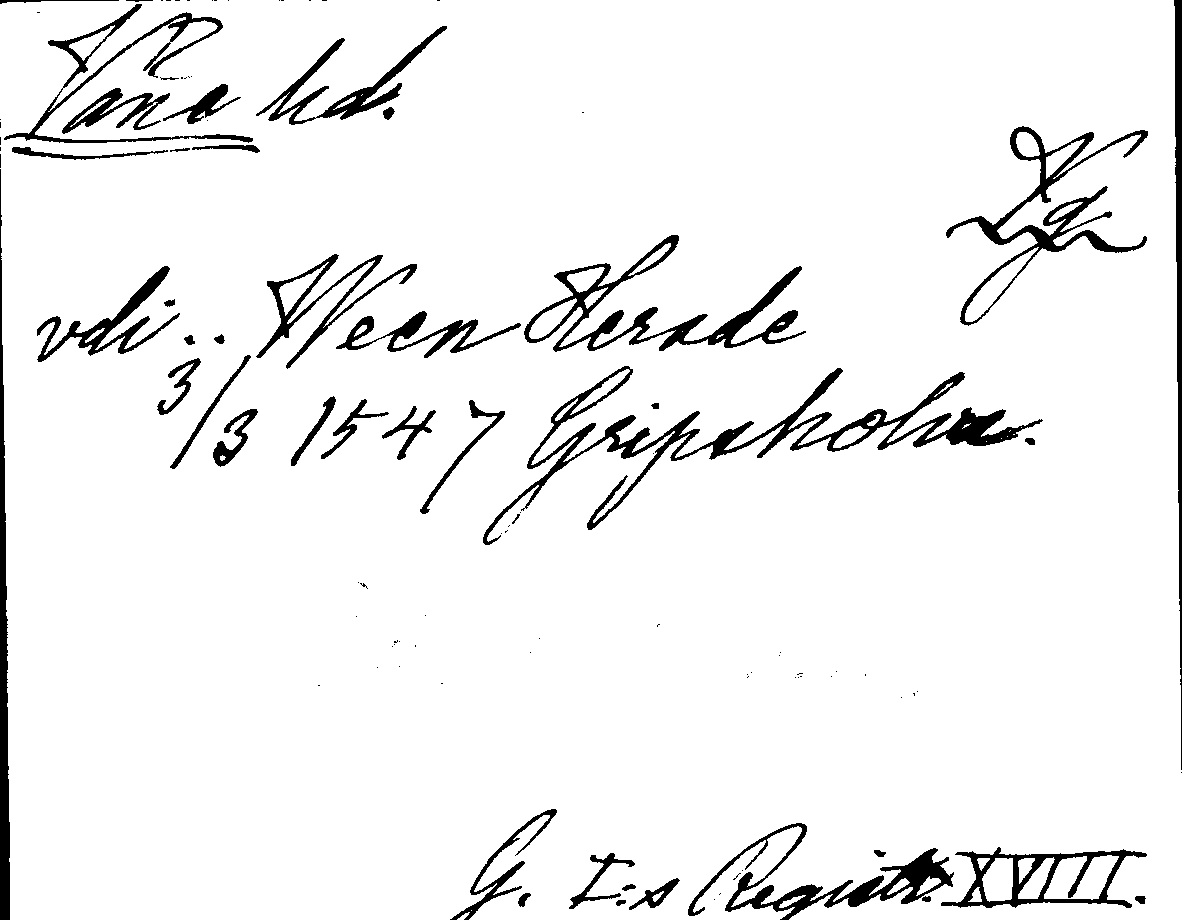 Väne hd.
Vg.
vdi .. Ween Herade
3/3 1547 Gripsholm.
G. I:s Registr. XVIII.